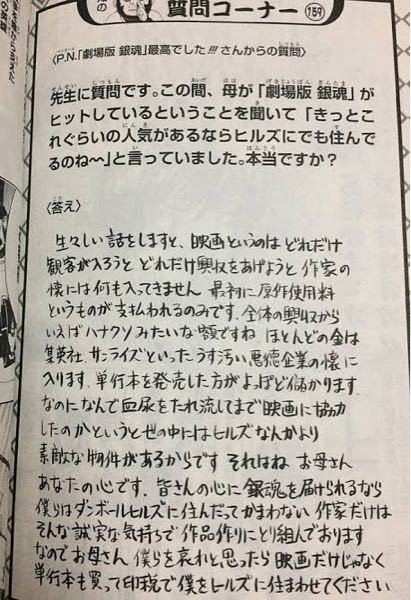 質問コーナー 159
〈P.N.「劇場版 銀魂」最高でした!!!さんからの質問〉
先生に質問です。この間、母が「劇場版 銀魂」が
ヒットしているということを聞いて「きっとこ
れぐらいの人気があるならヒルズにでも住んで
るのね〜」と言っていました。本当ですか?
〈答え〉
生々しい話をしますと、映画というのは どれだけ
観客が入ろうと どれだけ興収をあげようと 作家の
懐には何も入ってきません 最初に原作使用料
というものが支払われるのみです。全体の興収から
いえばハナクソみたいな額ですね。ほとんどの金は
集英社、サンライズといったうす汚い悪徳企業の懐に
入ります。単行本を発売した方がよっぽど儲かります
なのになんで血尿をたれ流してまで映画に協力
したのかというと世の中にはヒルズなんかより
素敵な物件があるからです それはね お母さん
あなたの心です。皆さんの心に 銀魂を届けられるなら
僕らはダンボールヒルズに住んだってかまわない 作家だけは
そんな誠実な気持ちで 作品作りにとり組んでおります
なのでお母さん 僕らを哀れと思ったら 映画だけじゃなく
単行本も買って印税で僕をヒルズに住まわせてください